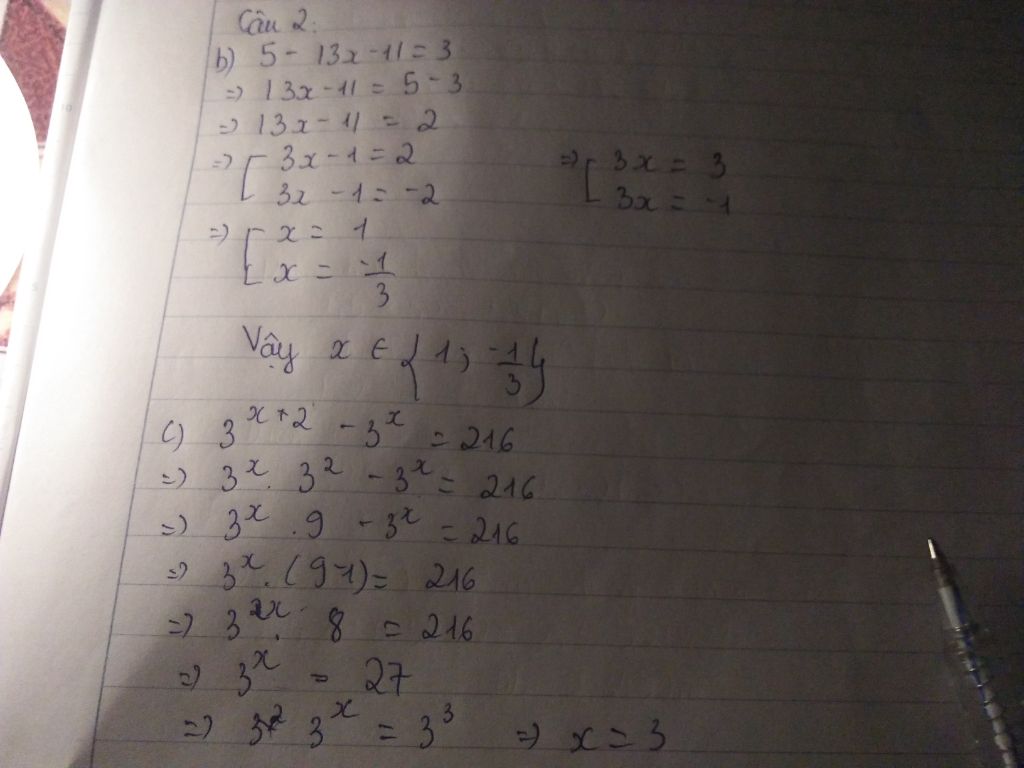 Câu 2:
b) 5 - |3x - 1| = 3
=> |3x - 1| = 5 - 3
=> |3x - 1| = 2
=> [ 3x - 1 = 2 => [ 3x = 3
3x - 1 = -2 3x = -1
=> [ x = 1
x = -1/3
Vậy x ∈ {1; -1/3}
c) 3^(x+2) - 3^x = 216
=> 3^x . 3^2 - 3^x = 216
=> 3^x . 9 - 3^x = 216
=> 3^x . (9-1) = 216
=> 3^x . 8 = 216
=> 3^x = 27
=> 3^x = 3^3 => x = 3